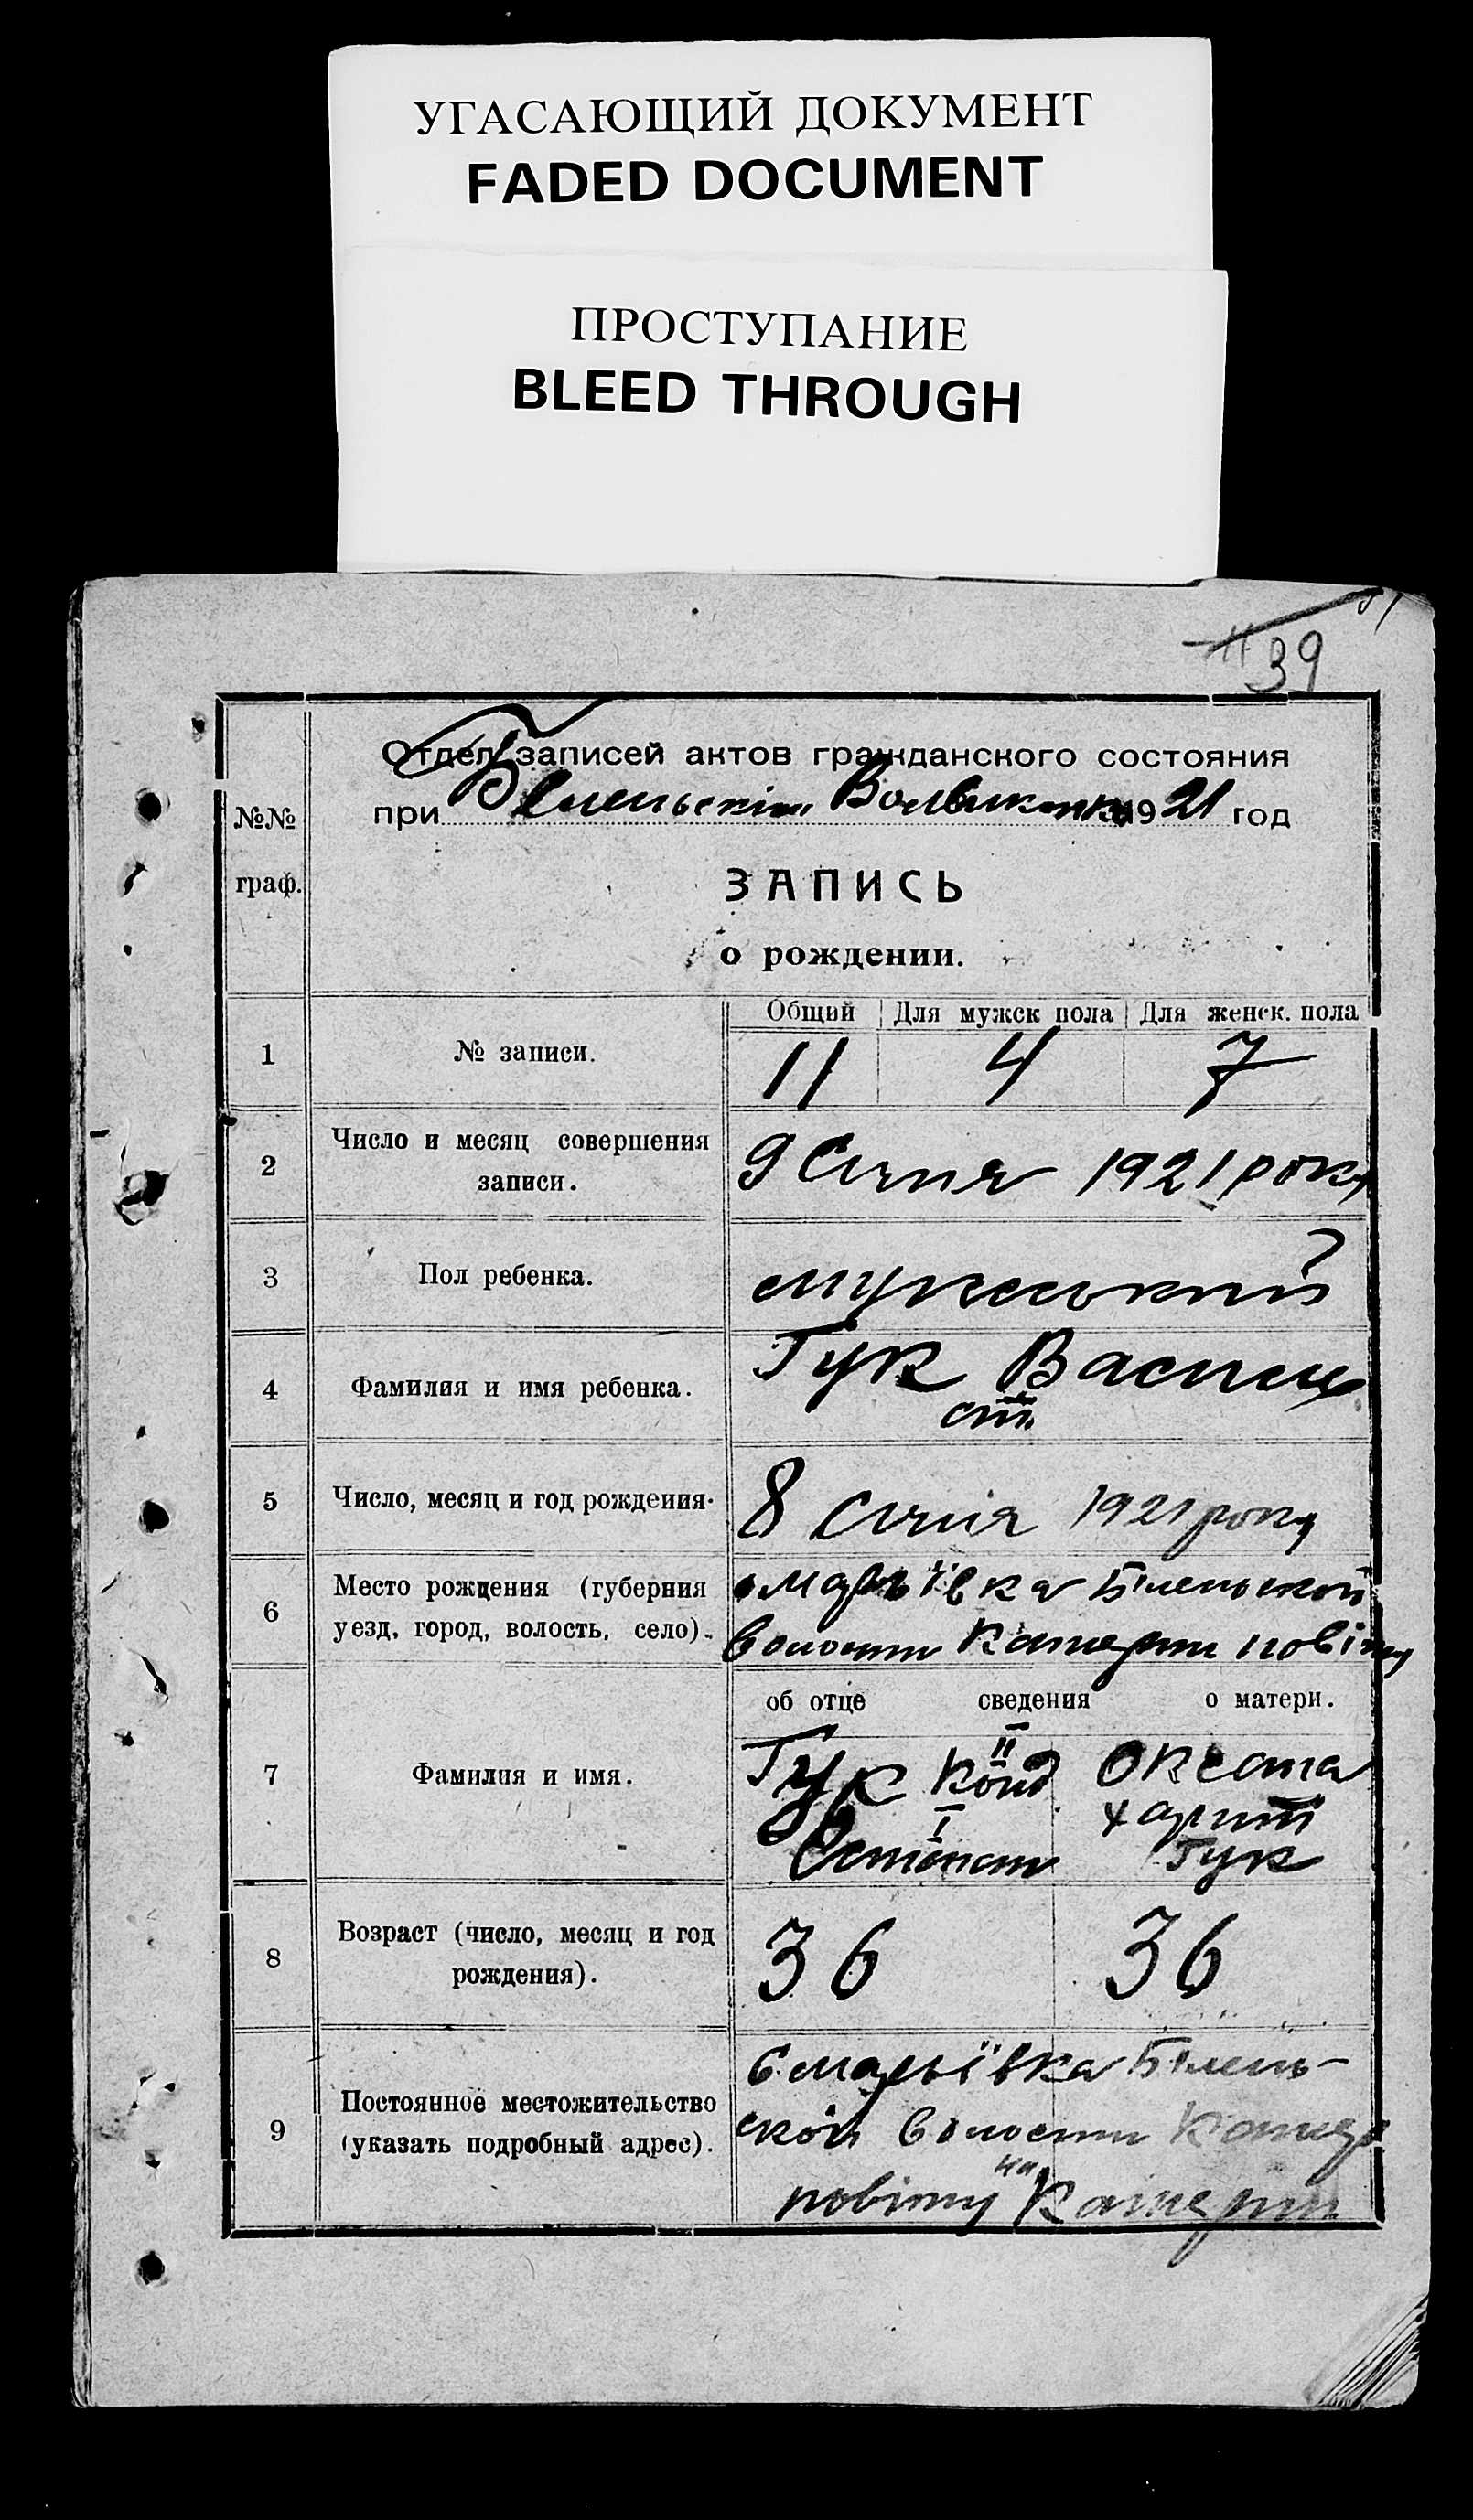 УГАСАЮЩИЙ ДОКУМЕНТ
FADED DOCUMENT
ПРОСТУПАНИЕ
BLEED THROUGH
39
Отдел записей актов гражданского состояния
при 1921 год
№№
граф.
ЗАПИСЬ
о рождении.
Общий Для мужск пола Для женск. пола
1 № записи. 11 4 7
2 Число и месяц совершения
записи.
9 Січня 1921 року
3 Пол ребенка. мужеський
4 Фамилия и имя ребенка. Гук Василь
5 Число, месяц и год рождения. 8 Січня 1921 року
6 Место рождения (губерния
уезд, город, волость, село).
Марьївка Біленьской
волости Катерин повіту
об отце сведения о матери.
7 Фамилия и имя.
Гук Конд Оксана
II
I
Гук
8 Возраст (число, месяц и год
рождения).
36 36
9 Постоянное местожительство
(указать подробный адрес).
с Марьївка Білень-
ской волости Катер
повіту на Катерин